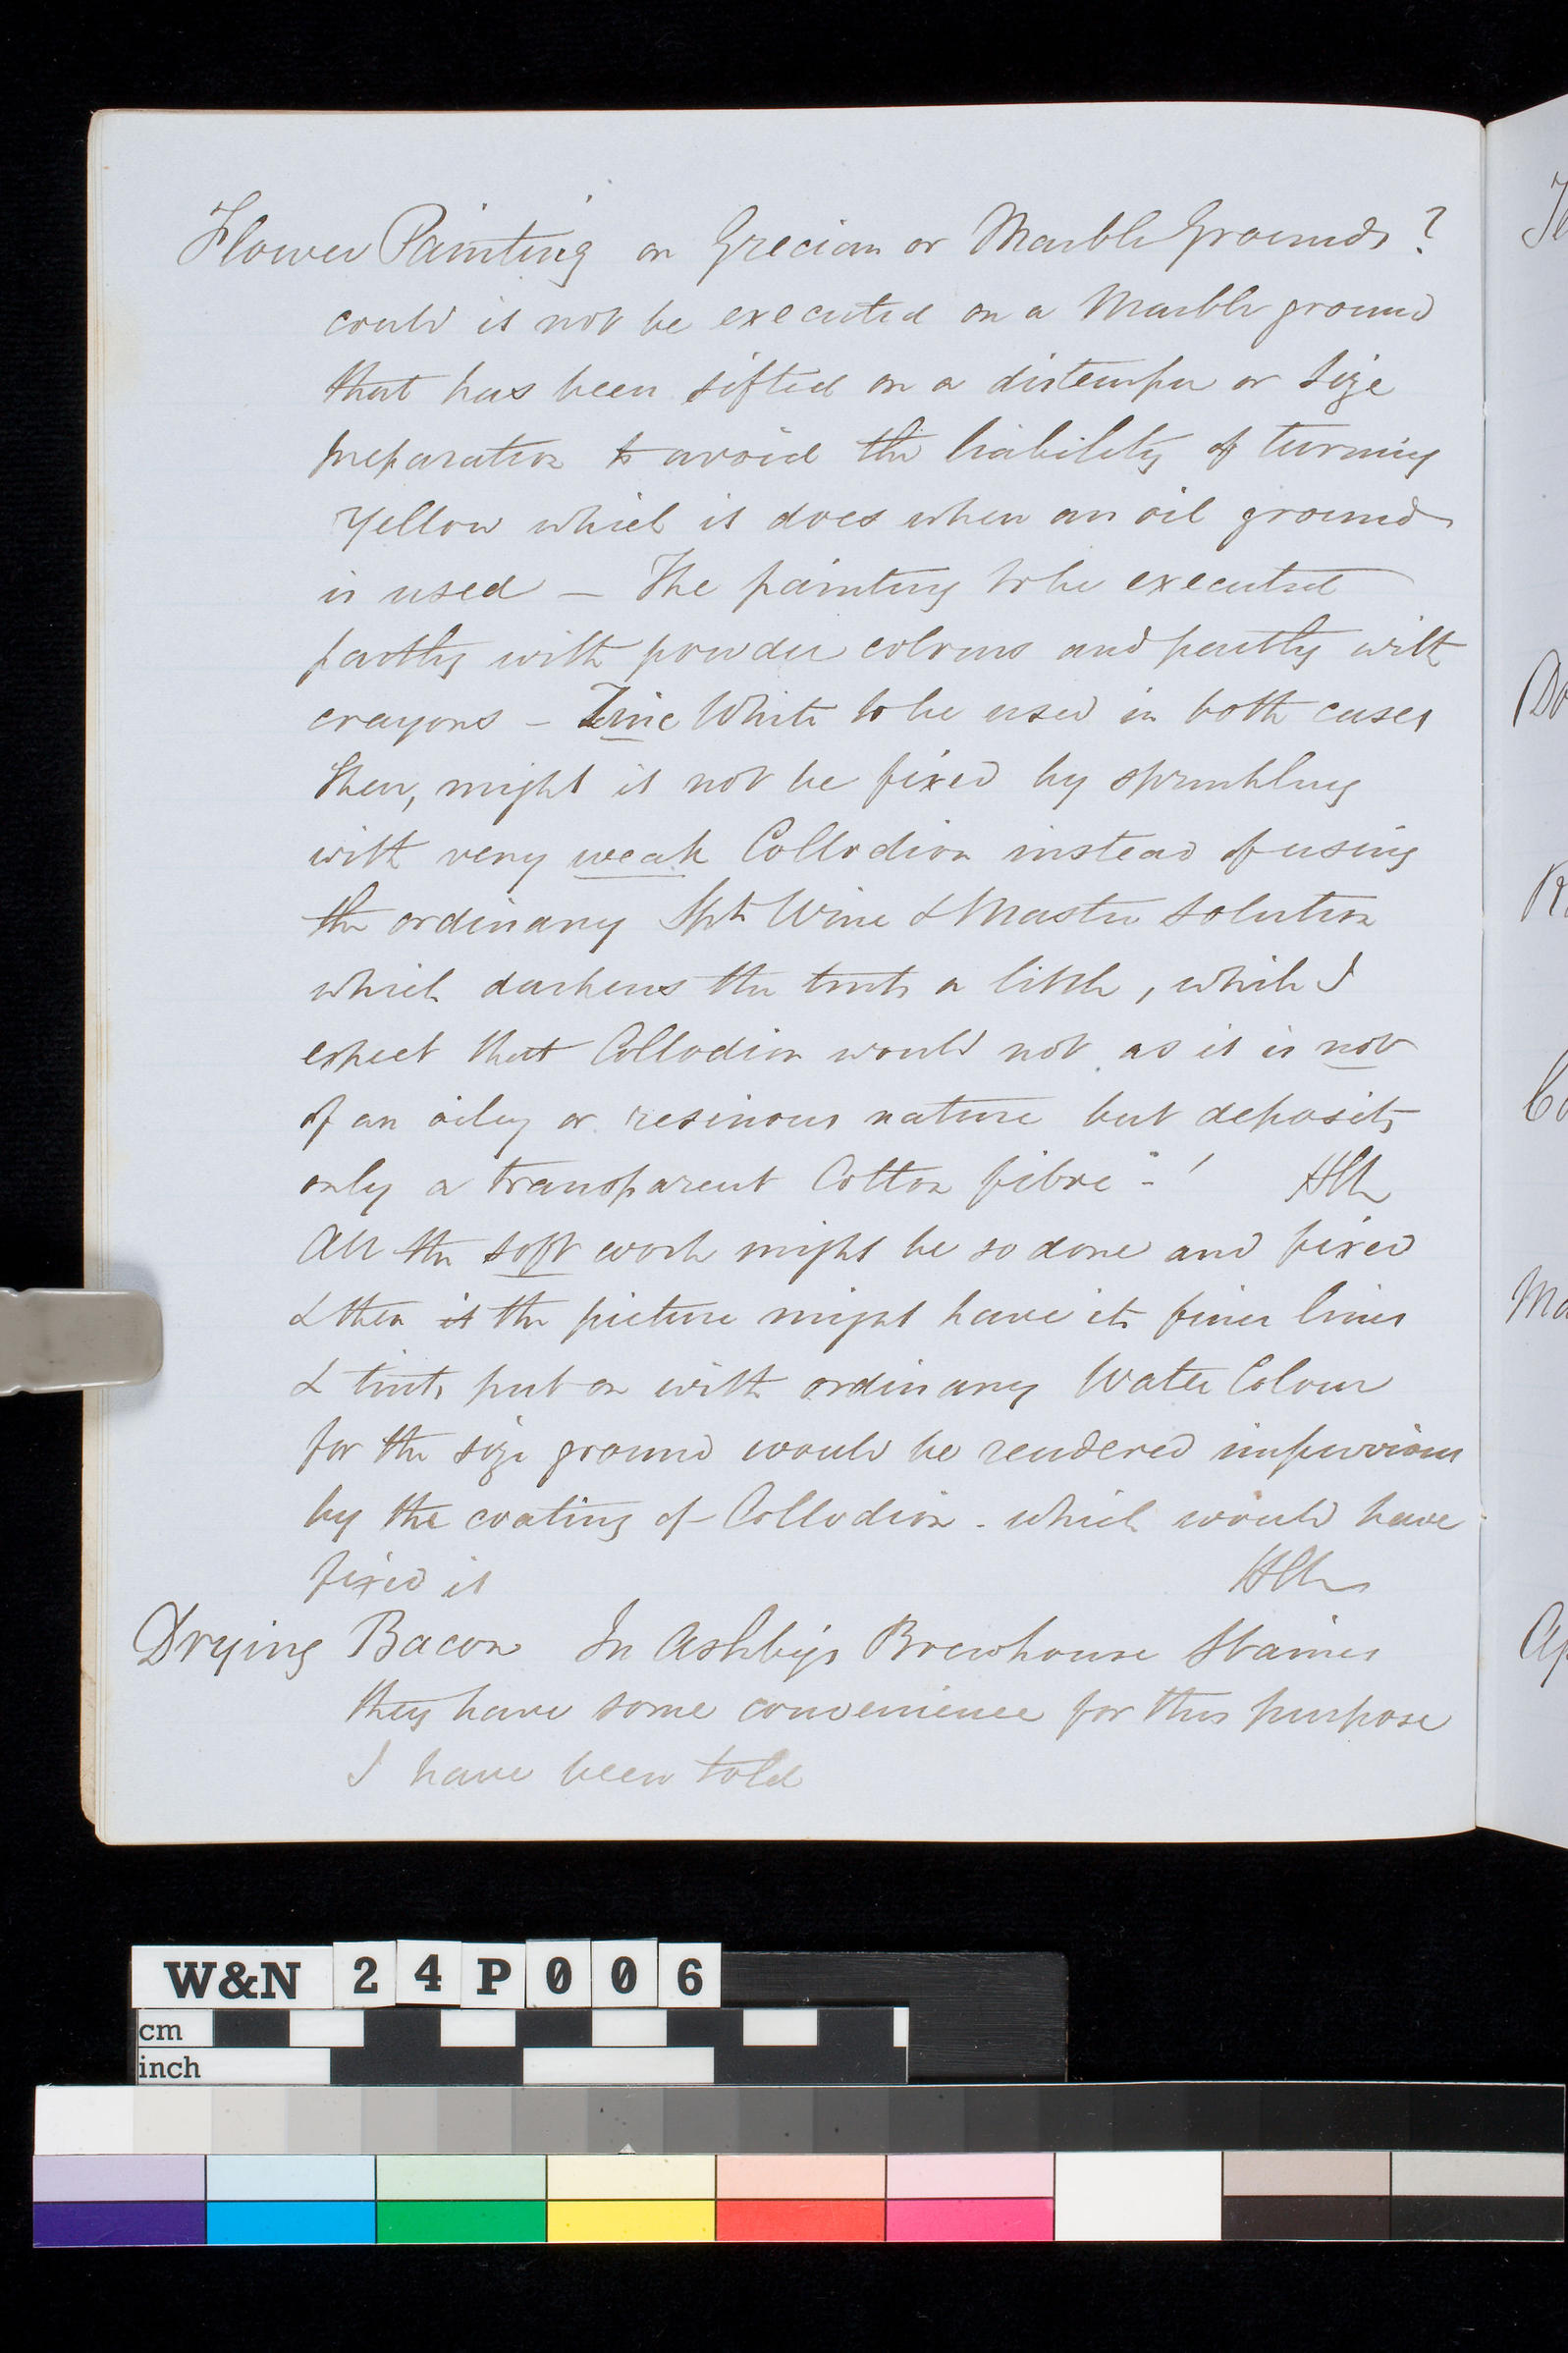 Flower Painting on Grecian or Marble Grounds?
could it not be executed on a Marble ground
that has been sifted on a distemper or size
preparation to avoid the liability of turning
Yellow which it does when an oil ground
is used — The painting to be executed
partly with powder colours and partly with
crayons — Zinc White to be used in both cases
then, might it not be fixed by sprinkling
with very weak Collodion instead of using
the ordinary Spt Wine & Mastic solution
which darkens the tints a little, while I
expect that Collodion would not as it is not
of an oiley or resinous nature but deposits
only a transparent Cotton fibre - !
All the soft work might be so done and fixed
& then it the picture might have its finer lines
& tints put on with ordinary Water Colour
for the size ground would be rendered impervious
by the coating of Collodion - which would have
fixed it
Drying Bacon In Ashby's Brewhouse Staines
they have some convenience for this purpose
I have been told
Ma
Ap
W&N 24P006
cm
inch